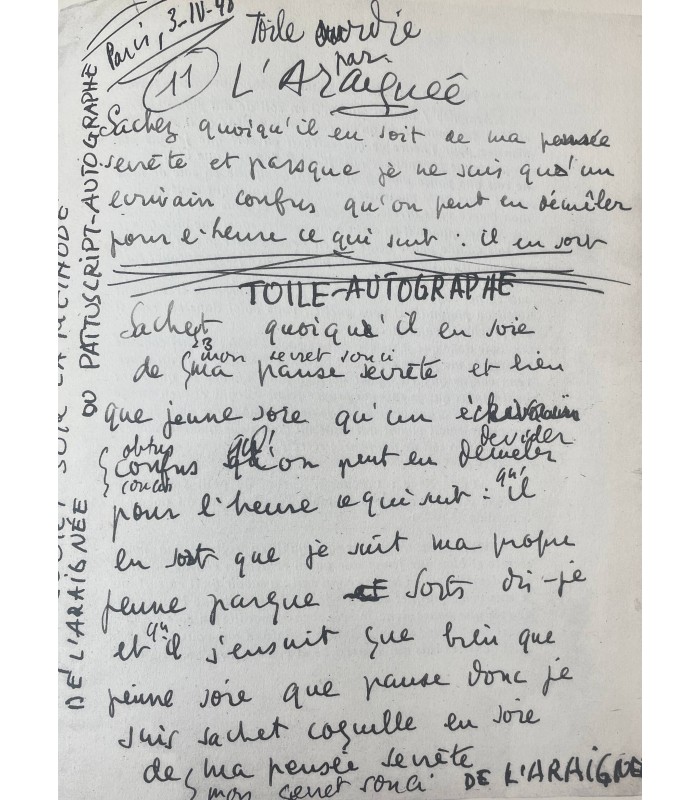 Paris, 3-IV-90
Toile ourdie
par
11 L'Araignée
Sachez quoiqu'il en soit de ma pensée
secrète et parsque je ne suis qu'un
ecrivain confus qu'on peut en démêler
pour l'heure ce qui suit : il en sort
TOILE-AUTOGRAPHE
Sachet quoiqu'il en soie
mon secret souci
de ma pause secrète et bien
que jeune soie qu'un
obtus qu' devider
confus qu'on peut en demeler
pour l'heure ce qui suit : qu'il
en sort que je suit ma propre
jeune parque sorts dis-je
et qu'il s'ensuit que bien que
jeune soie que pause donc je
suis sachet coquille en soie
de ma pensée secrète
mon secret souci
DE L'ARAIGNE
OU PATTUSCRIPT-AUTOGRAPHE
DE L'ARAIGNÉE
SUR LA METHODE